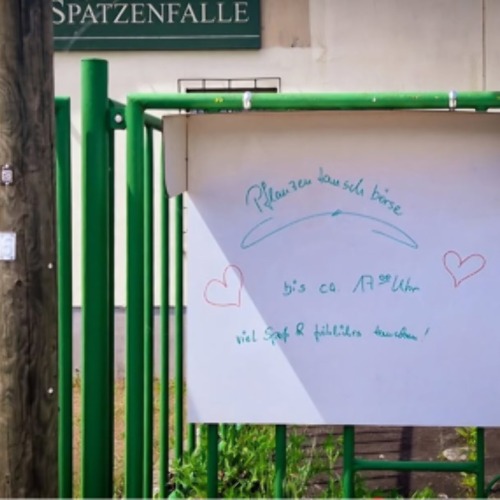 SPATZENFALLE
Pflanzentauschbörse
bis ca. 17⁰⁰ Uhr
viel Spaß & fröhliches tauschen!